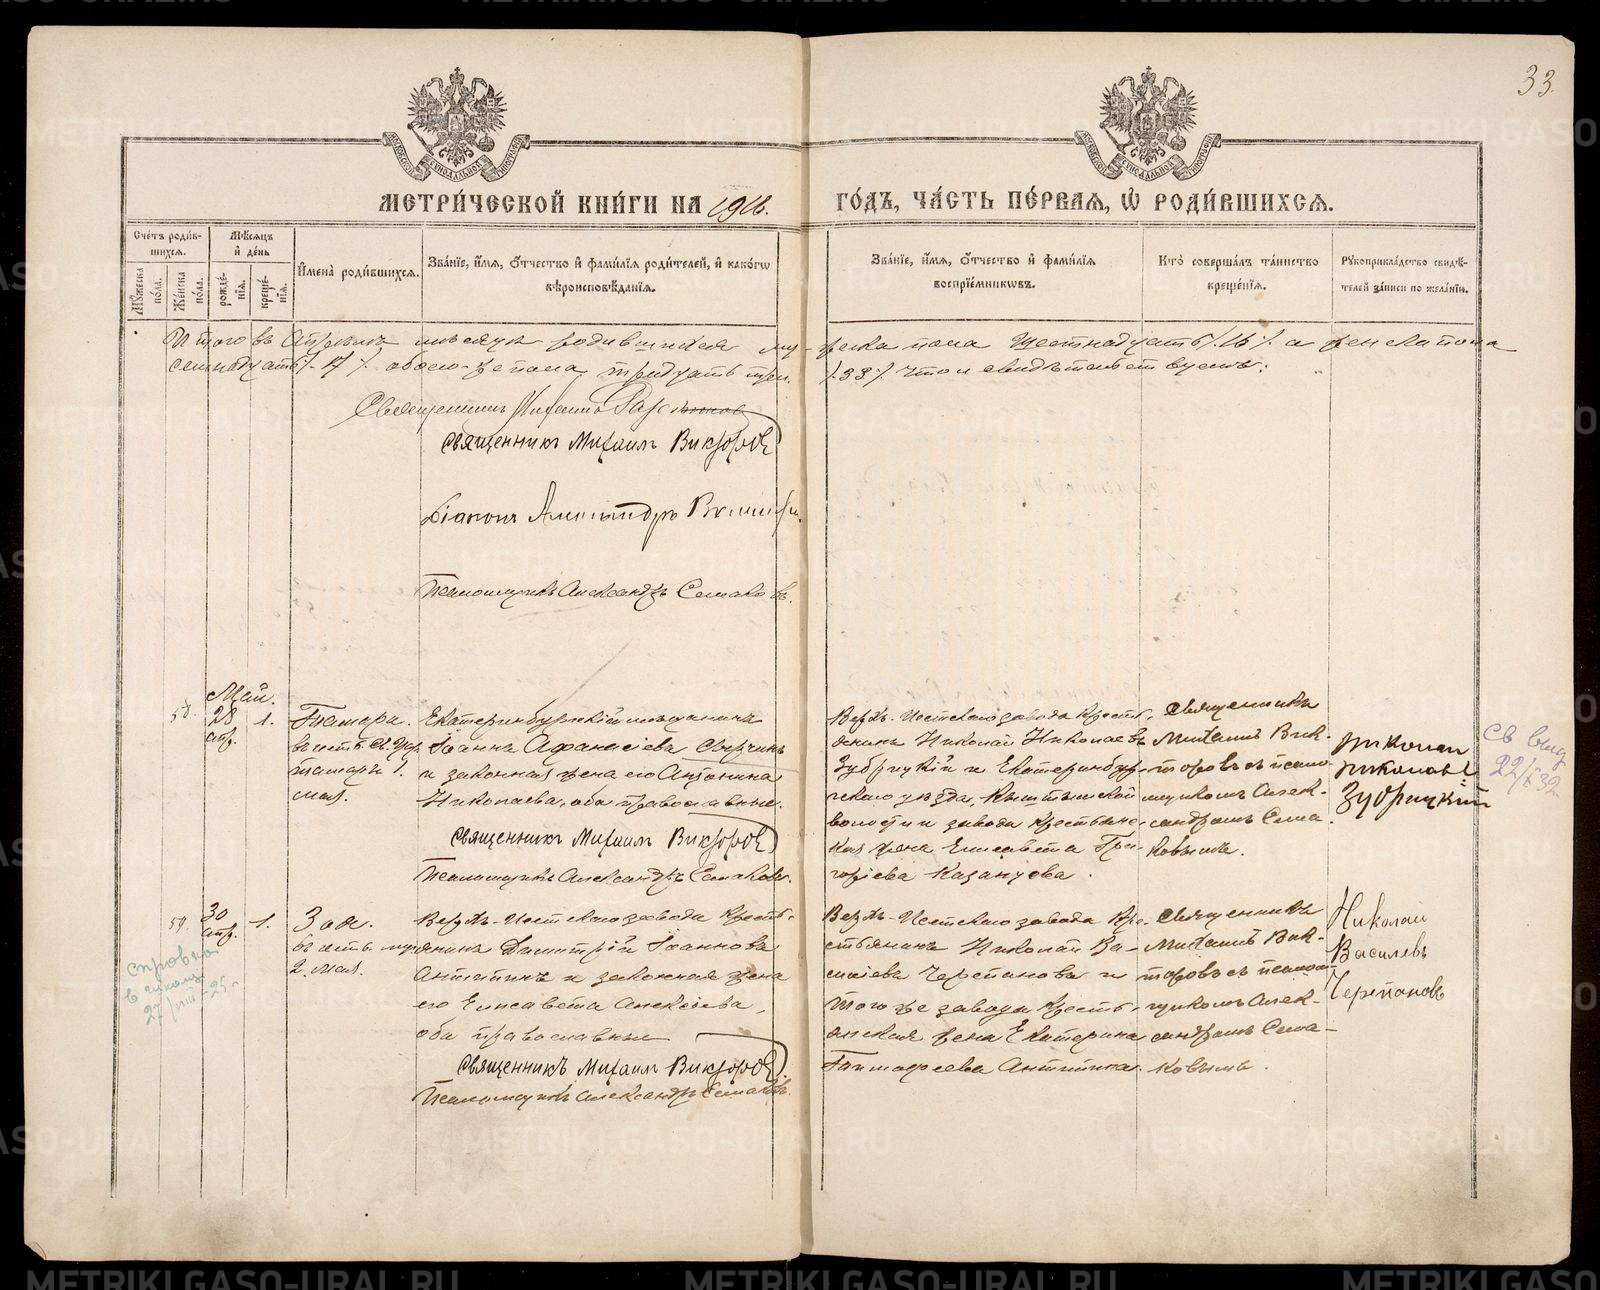 33.
МЕТРИ́ЧЕСКОЙ КНИ́ГИ НА 1916. ГО́ДЪ, ЧА́СТЬ ПЕ́РВАЯ, Ѡ РОДИ́ВШИХСЯ.
Сче́тъ роди́в-
шихся.
Му́жеска по́ла.
Же́нска по́ла.
Мѣ́сяцъ и де́нь
рожде́нія.
креще́нія.
Имена̀ роди́вшихся.
Зва́нїе, и́мя, ѻ҆́тчество и҆ фами́лїя роди́телей, и҆ како́гѡ
вѣроисповѣ́данїя.
Зва́нїе, и́мя, ѻ҆́тчество и҆ фами́лїя
воспрїе́мникѡвъ.
Кто̀ соверша́лъ та́инство
креще́нїя.
Рꙋкоприкла́дство свидѣ́-
телей за́писи по жела́нїю.
Итого въ Апрѣлѣ мѣсяцѣ родившихся му-жеска пола шестнадцать /.16/. а женска пола
семнадцать /.17/. обоего-же пола тридцать три. /.33/. что и свидѣтельствуемъ:
Священникъ Михаилъ
Священникъ Михаилъ Викторовъ
Діаконъ Александръ
Псаломщикъ Александръ Семаковъ.
Май.
58.
28
апр.
1.
Тамара.
въ честь св. Цар.
Тамары 1.
мая.
Екатеринбургскій мѣщанинъ
Іоаннъ Аѳанасіевъ
и законная жена его Антонина
Николаева, оба православные.
Священникъ Михаилъ Викторовъ
Псаломщикъ Александръ Семаковъ.
Верхъ-Исетскаго завода кресть-
янинъ Николай Николаевъ
Зубрицкій и Екатеринбур-
гскаго уѣзда, Кыштымской
волости и завода крестьянс-
кая жена Елисавета Гри-
горіева Казанцева.
Священникъ
Михаилъ Вик-
торовъ съ псало-
мщикомъ Алек-
сандромъ Сема-
ковымъ.
Николай
Николаевъ
Зубрицкій
59.
30
апр.
1.
Зоя.
въ честь муч.
2. мая.
Верхъ-Исетскаго завода кресть-
янинъ Димитрій Іоанновъ
Антипинъ и законная жена
его Елисавета Алексіева,
оба православные
Священникъ Михаилъ Викторовъ.
Псаломщикъ Александръ Семаковъ.
Верхъ-Исетскаго завода кре-
стьянинъ Николай Ва-
силіевъ Черепановъ и
того же завода кресть-
янская жена Екатерина
Тимоѳеева Антипина.
Священникъ
Михаилъ Вик-
торовъ съ псалом-
щикомъ Алек-
сандромъ Сема-
ковымъ.
Николай
Василевъ
Черепановъ
справка
27/VIII-25 г.
св выд
METRIKI.GASO-URAL.RU